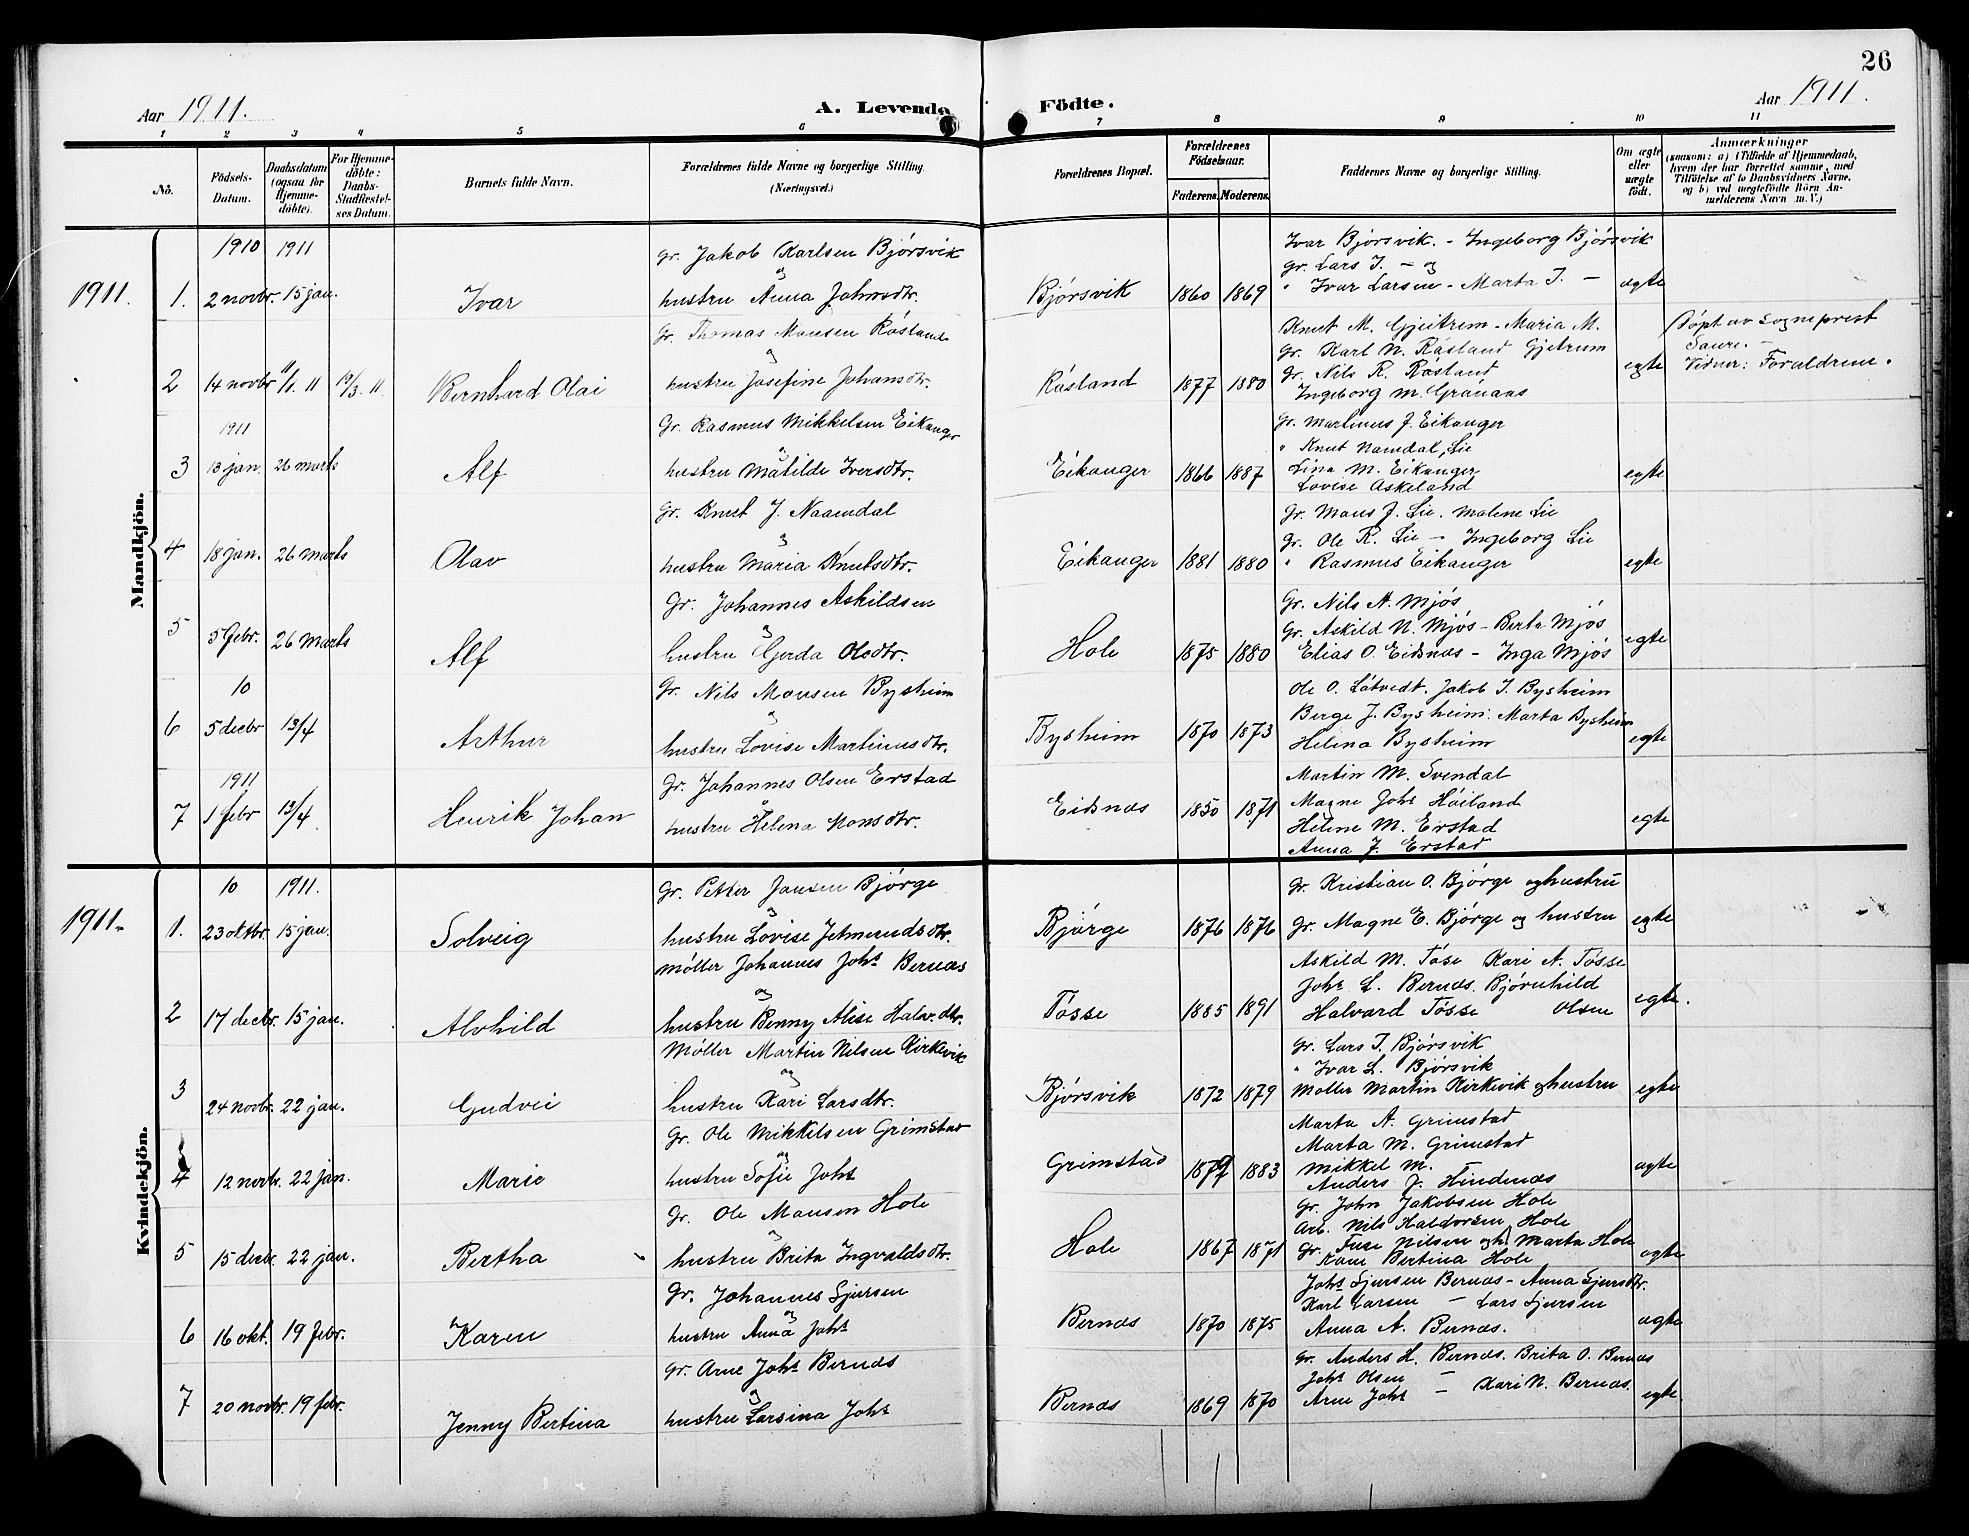 26
Aar 1911.
A. Levende Födte.
Aar 1911.
1 2 3 4 5 6 7 8 9 10 11
No.
Födsels-Datum.
Daabsdatum (ogsaa for Hjemme-döbte).
For Hjemme-döbte: Daabs-Stadfæstel-ses Datum.
Barnets fulde Navn.
Forældrenes fulde Navne og borgerlige Stilling. (Næringsvei.)
Forældrenes Bopæl.
Forældrenes Födselsaar.
Faderens. Moderens.
Faddernes Navne og borgerlige Stilling.
Om ægte eller uægte født.
Anmærkninger
(saasom: a) i Tilfælde af Hjemmedaab, hvem der har forrettet samme, med Tilföielse af to Daabsvidners Navne, og b) ved uægtefödte Börn Anmelderens Navn m.V.)
Mandkjön.
1910 1911 gr. Jakob Karlsen Bjórsvik Ivar Bjórsvik. - Ingeborg Bjórsvik
og gr. Lars I. - og
1911. 1. 2 novbr. 15 jan. Ivar hustru Anna Johnsdtr. Bjórsvik 1860 1869 " Ivar Larsen - Marta I. - ægte
Gr. Thomas Monsen Rósland Knut M. Gjeitrem - Maria M. Döpt av sogneprest
og Gr. Karl N. Rásland Gjetrem Saure. -
2 14 novbr 11/1. 11 19/3. 11. Bernhard Olai hustru Josefine Johansdtr. Rósland 1877 1880 Gr. Nils K. Rósland egte Vidner: Foraldrene.
Ingeborg M. Grónaas
1911 Gr. Rasmus Mikkelsen Eikanger Gr. Martinus J. Eikanger
og " Knut Namdal, Lie
3 13 jan. 26 marts Alf hustru Matilde Iversdtr. Eikanger 1866 1887 Lina M. Eikanger egte
Lovise Askeland
Gr. Knut J. Naamdal Gr. Mons J. Lie. Malene Lie
og Gr. Ole R. Lie - Ingeborg Lie
4 18 jan. 26 marts Olav hustru Maria Knutsdtr. Eikanger 1881 1880 " Rasmus Eikanger egte
Gr. Johannes Askildsen Gr. Nils A. Mjós
og Gr. Askild N. Mjós - Berta Mjós
5 5 febr. 26 marts Alf hustru Gerda Olsdtr. Hole 1875 1880 Elias O. Eidsnæs - Inga Mjós egte
10 Gr. Nils Monsen Bysheim Ole O. Lótvedt. Jakob I. Bysheim
og Berge J. Bysheim. Marta Bysheim
6 5 decbr 13/4 Arthur hustru Lovise Martinusdtr. Bysheim 1870 1873 Helina Bysheim egte
1911 Gr. Johannes Olsen Erstad Martin M. Svendal
og Magne Johs Hóiland
7 1 febr 13/4. Henrik Johan hustru Helena Monsdtr. Eidsnæs 1850 1871 Helene M. Erstad egte
Anna J. Erstad
Kvindekjön.
10 1911. Gr. Petter Jansen Bjórge Gr. Kristian O. Bjórge og hustru
og
1911. 1. 23 oktbr. 15 jan. Solveig hustru Lovise Jetmundsdtr. Bjórge 1876 1876 Gr. Magne E. Bjórge og hustru egte
Móller Johannes Johs Bernæs Askild M. Tóse Kari A. Tósse
og Johs L. Bernæs. Bjórnhild
2 17 decbr. 15 jan. Alvhild hustru Benny Alise Halv.dtr. Tósse 1885 1891 Halvard Tósse Olsen egte.
Móller Martin Nilsen Kirkevik Gr. Lars I. Bjórsvik
og " Ivar L. Bjórsvik
3 24 novbr. 22 jan. Gudvei hustru Kari Larsdtr. Bjórsvik 1872 1879 Móller Martin Kirkevik og hustru egte
Gr. Ole Mikkelsen Grimstad Marta A. Grimstad
og Marta M. Grimstad
4 12 novbr. 22 jan. Marie hustru Sofie Johs Grimstad 1879 1883 Mikkel M. ægte
Anders J. Hindenæs
Gr. Ole Monsen Hole Gr. John Jakobsen Hole
og Arb. Nils Haldorsen Hole
5 15 decbr. 22 jan. Bertha hustru Brita Ingvaldsdtr. Hole 1867 1871 Gr. Nilsen og h. Marta Hole ægte
Bertina Hole
Gr. Johannes Sjursen Johs Sjursen Bernæs - Anna Sjursdtr.
og Karl Larsen - Lars Sjursen
6 16 okt. 19 febr. Karen hustru Anna Johs Bernæs 1870 1875 Anna A. Bernæs. ægte
Gr. Arne Johs Bernæs Gr. Anders H. Bernæs. Brita O. Bernæs
og Johs Olsen -
7 20 novbr. 19 febr. Jenny Bertina hustru Larsina Johs Bernæs 1869 1870 Arne Johs - Kari N. Bernæs. egte.